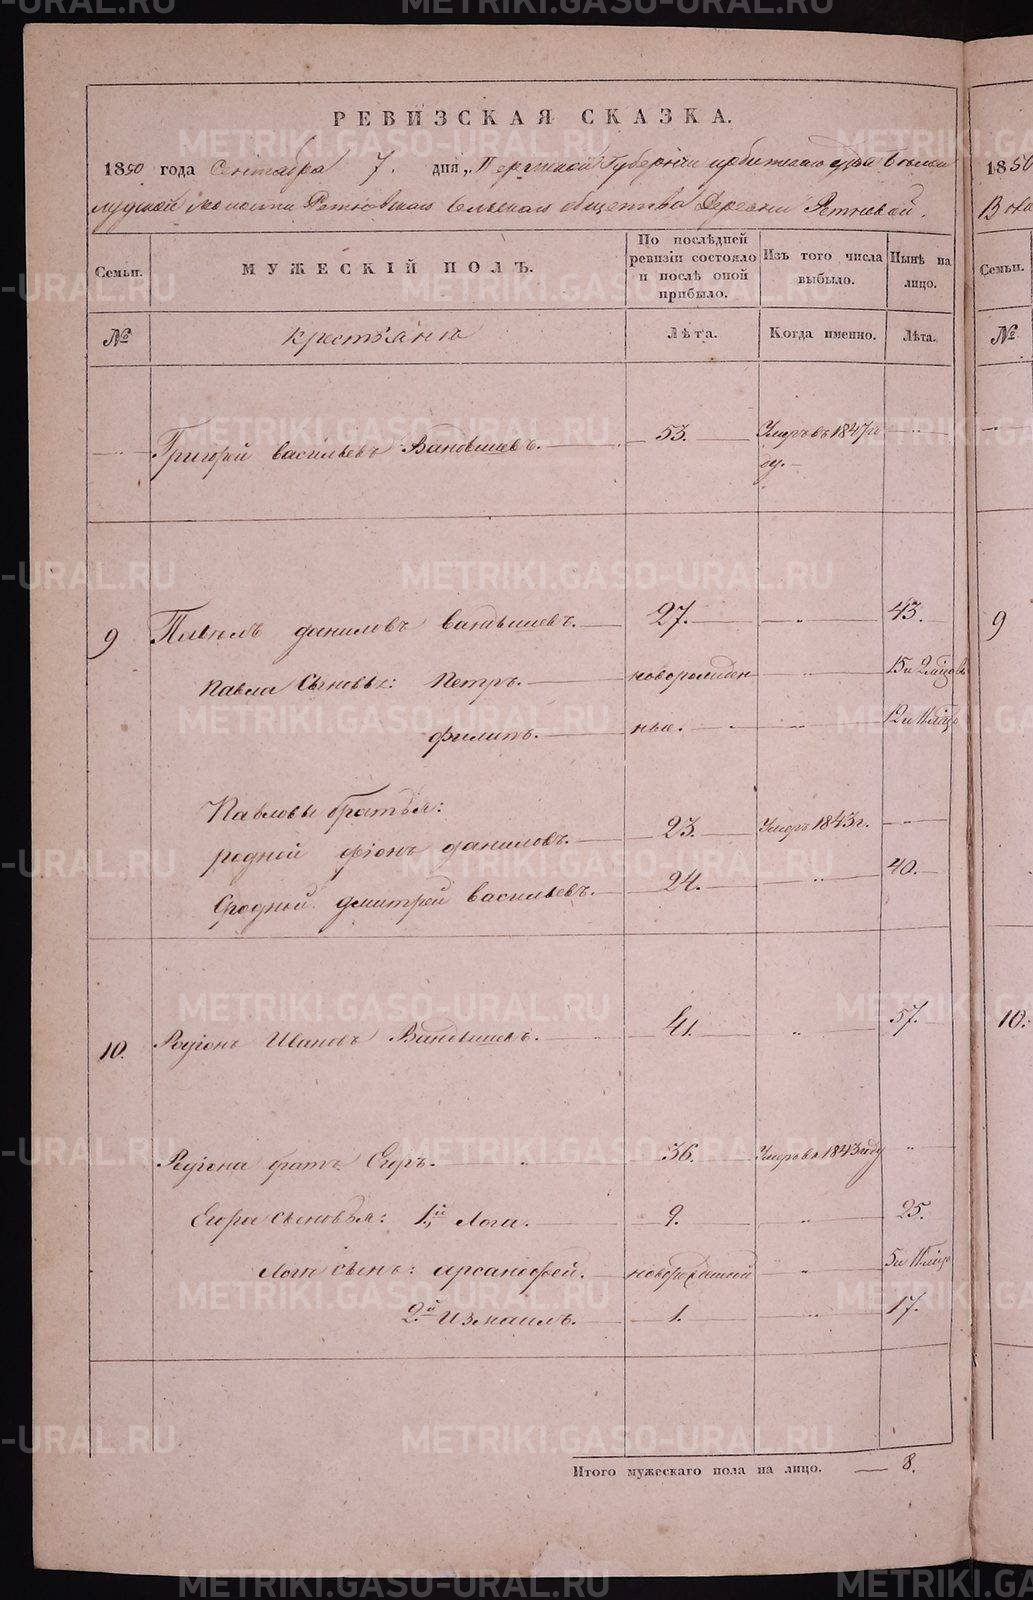 РЕВИЗСКАЯ СКАЗКА.
1850 года Сентября 7. дня, Пермской Губерніи ирбитскаго уѣзда
волости Ретневскаго Сельскаго общества Деревни Ретневой.
Семьи.
МУЖЕСКІЙ ПОЛЪ.
По послѣдней ревизіи состояло и послѣ оной прибыло.
Изъ того числа выбыло.
Нынѣ на лицо.
№
крестьянъ
Лѣта.
Когда именно.
Лѣта.
Григорей васильевъ Вандышевъ. 53. Умеръ въ 1847 го
ду.
9 Павелъ даниловъ вандышевъ. 27. „ 43.
Павла Сыновья: Петръ. новорожден „ 15 и 2 мѣсцовъ
филипъ. ные. „ 12 и 11 мѣсц
Павловы братья:
родной фіонъ даниловъ. 23. Умеръ 1843 г.
Сродной дмитрей васильевъ. 24. „ 40.
10. Родіонъ Ивановъ Вандышевъ. 41. „ 57.
Родіона братъ Егоръ. „ 36. Умеръ въ 1843 году „
Егора сыновья: 1.й Лога. 9. „ 25.
Логи сынъ: арсанофей. новорожденной „ 5 и 11 мѣсц
2.й Измаилъ. 1. „ 17.
Итого мужескаго пола на лицо. 8.
1850
Семьи.
№
9
10.
METRIKI.GASO-URAL.RU